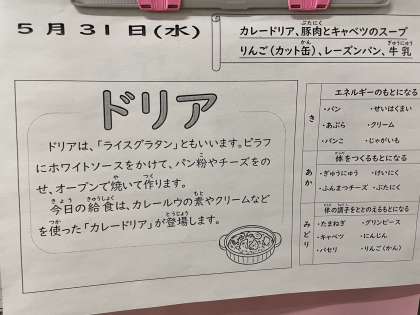 5月31日(水)
カレードリア、豚肉とキャベツのスープ
りんご(カット缶)、レーズンパン、牛乳
ドリア
ドリアは、「ライスグラタン」ともいいます。ピラフ
にホワイトソースをかけて、パン粉やチーズをの
せ、オーブンで焼いて作ります。
今日の給食は、カレールウの素やクリームなど
を使った「カレードリア」が登場します。
き
エネルギーのもとになる
・パン ・せいはくまい
・あぶら ・クリーム
・パンこ ・じゃがいも
あか
体をつくるもとになる
・ぎゅうにゅう ・けいにく
・ふんまつチーズ ・ぶたにく
みどり
体の調子をととのえるもとになる
・たまねぎ ・グリンピース
・キャベツ ・にんじん
・パセリ ・りんご(かん)